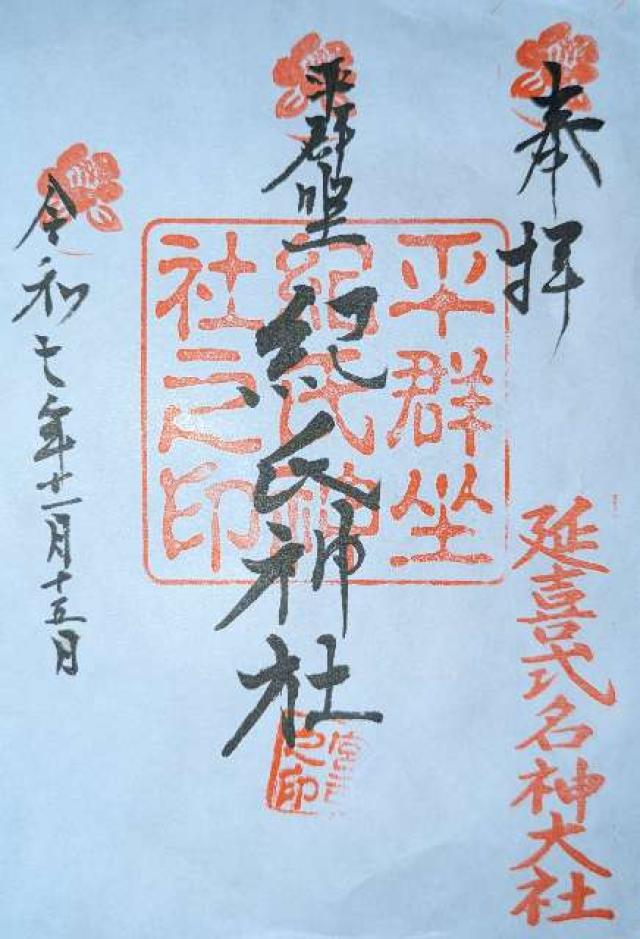 奉拝
延喜式名神大社
平群坐
紀氏神社
平群坐
紀氏神
社之印
宮司之印
令和七年十一月十五日